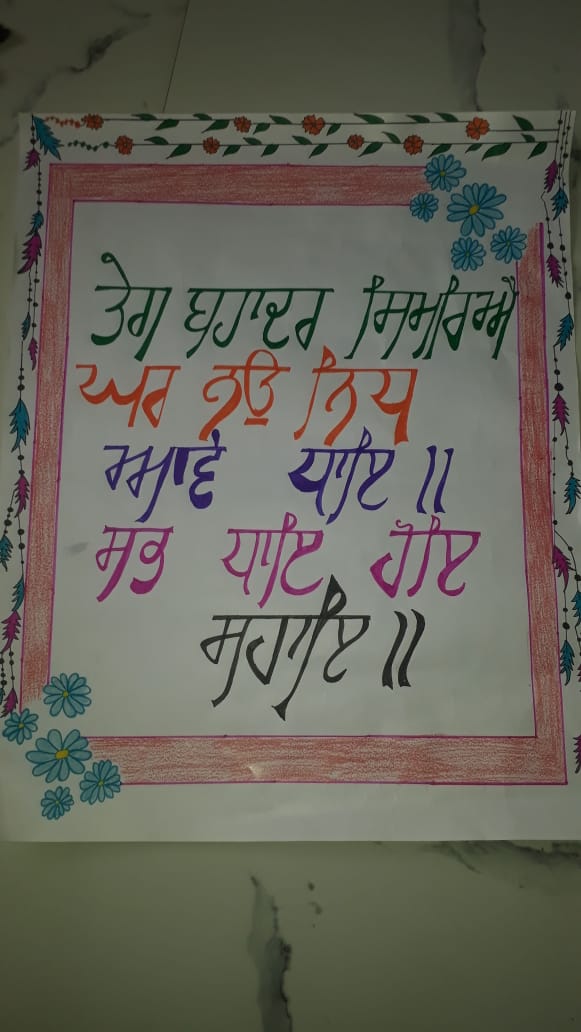 ਤੇਗ ਬਹਾਦਰ ਸਿਮਰਿਐ
ਘਰ ਨਉ ਨਿਧ
ਆਵੇ ਧਾਇ ॥
ਸਭ ਥਾਂਇ ਹੋਇ
ਸਹਾਇ ॥